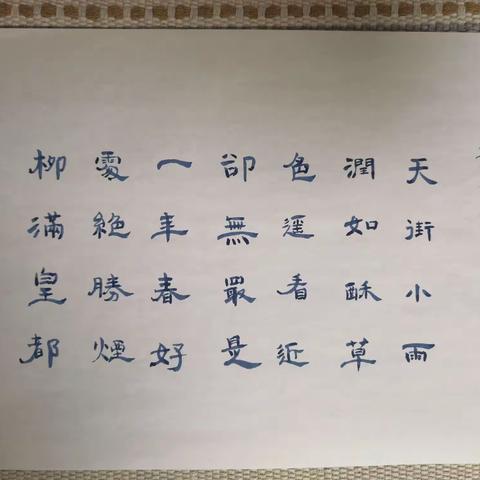 天街小雨
潤如酥草
色遥看近
卻無最是
一年春好
處絕勝煙
柳滿皇都